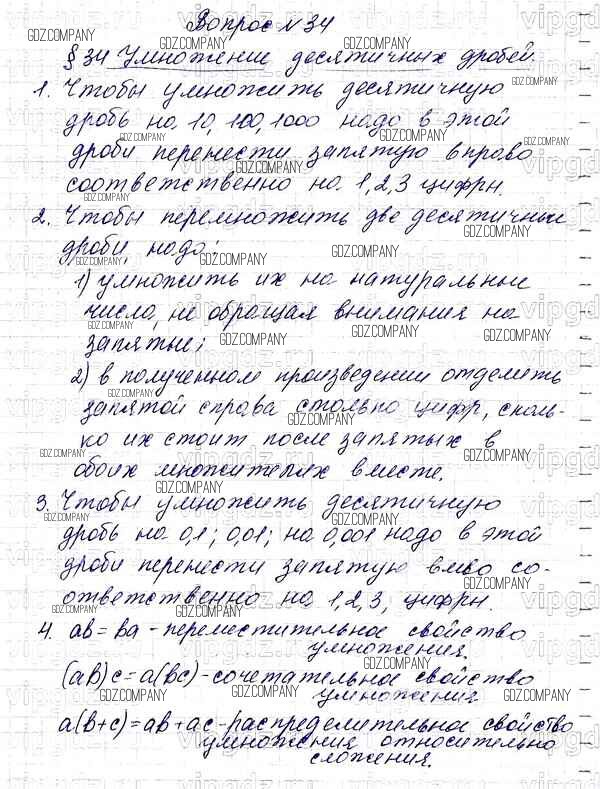 Вопрос №34
§ 34 Умножение десятичных дробей
1. Чтобы умножить десятичную
дробь на 10, 100, 1000 надо в этой
дроби перенести запятую вправо
соответственно на 1, 2, 3 цифры.
2. Чтобы перемножить две десятичные
дроби, надо:
1) умножить их на натуральные
числа, не обращая внимания на
запятые;
2) в полученном произведении отделить
запятой справа столько цифр, сколь-
ко их стоит после запятых в
обоих множителях вместе.
3. Чтобы умножить десятичную
дробь на 0,1; 0,01; на 0,001 надо в этой
дроби перенести запятую влево со-
ответственно на 1, 2, 3, цифры.
4. ab = ba - переместительное свойство
умножения.
(ab)c = a(bc) - сочетательное свойство
умножения
a(b+c) = ab + ac - распределительное свойство
умножения относительно
сложения.
GDZ.COMPANY
vipgdz.ru